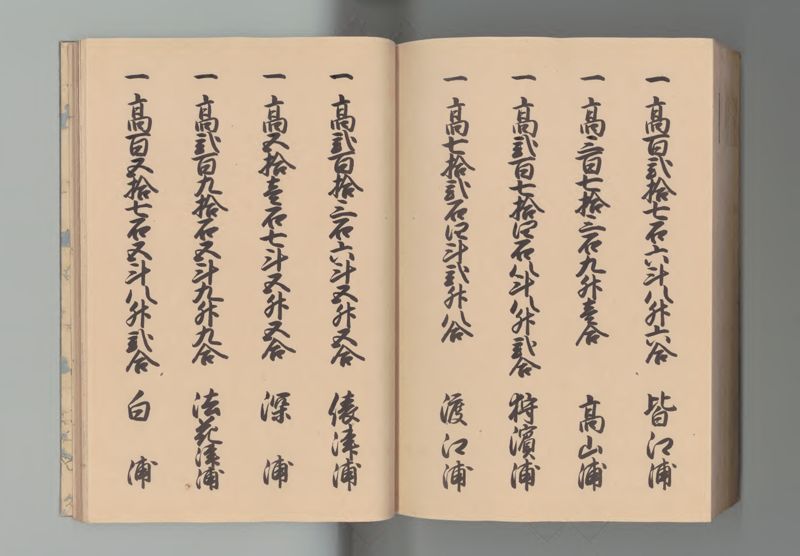 一 高百弐拾七石六斗八升六合 皆江浦
一 高三百七拾三石九升壱合 高山浦
一 高弐百七拾四石八斗八升弐合 狩濱浦
一 高七拾弐石四斗弐升八合 渡江浦
一 高弐百拾三石六斗五升五合 俵津浦
一 高五拾壱石七斗五升五合 深浦
一 高弐百九拾石五斗九升九合 法花津浦
一 高百五拾七石五斗八升弐合 白浦